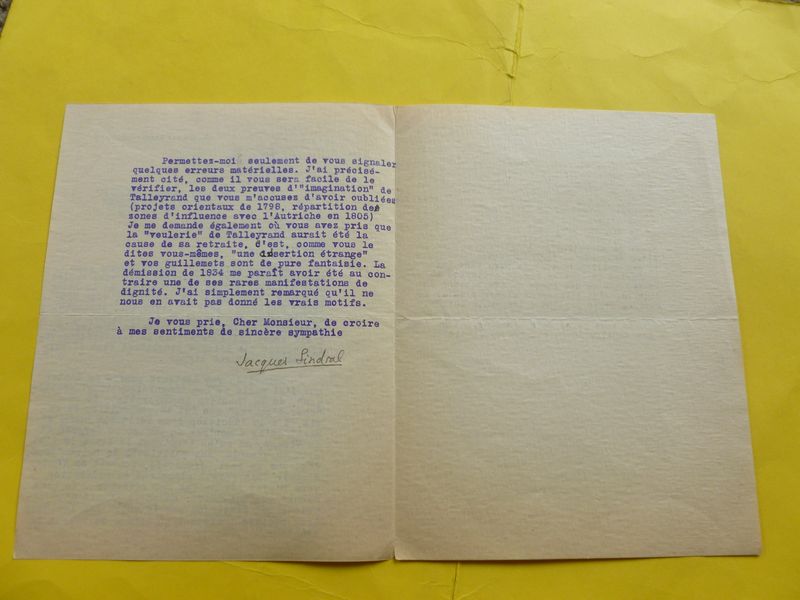 Permettez-moi seulement de vous signaler
quelques erreurs matérielles. J'ai précisé-
ment cité, comme il vous sera facile de le
vérifier, les deux preuves d'"imagination" de
Talleyrand que vous m'accusez d'avoir oubliées
(projets orientaux de 1798, répartition des
zones d'influence avec l'Autriche en 1805)
Je me demande également où vous avez pris que
la "veulerie" de Talleyrand aurait été la
cause de sa retraite, c'est, comme vous le
dites vous-mêmes, "une assertion étrange"
et vos guillemets sont de pure fantaisie. La
démission de 1834 me paraît avoir été au con-
traire une de ses rares manifestations de
dignité. J'ai simplement remarqué qu'il ne
nous en avait pas donné les vrais motifs.
Je vous prie, Cher Monsieur, de croire
à mes sentiments de sincère sympathie
Jacques Sindral